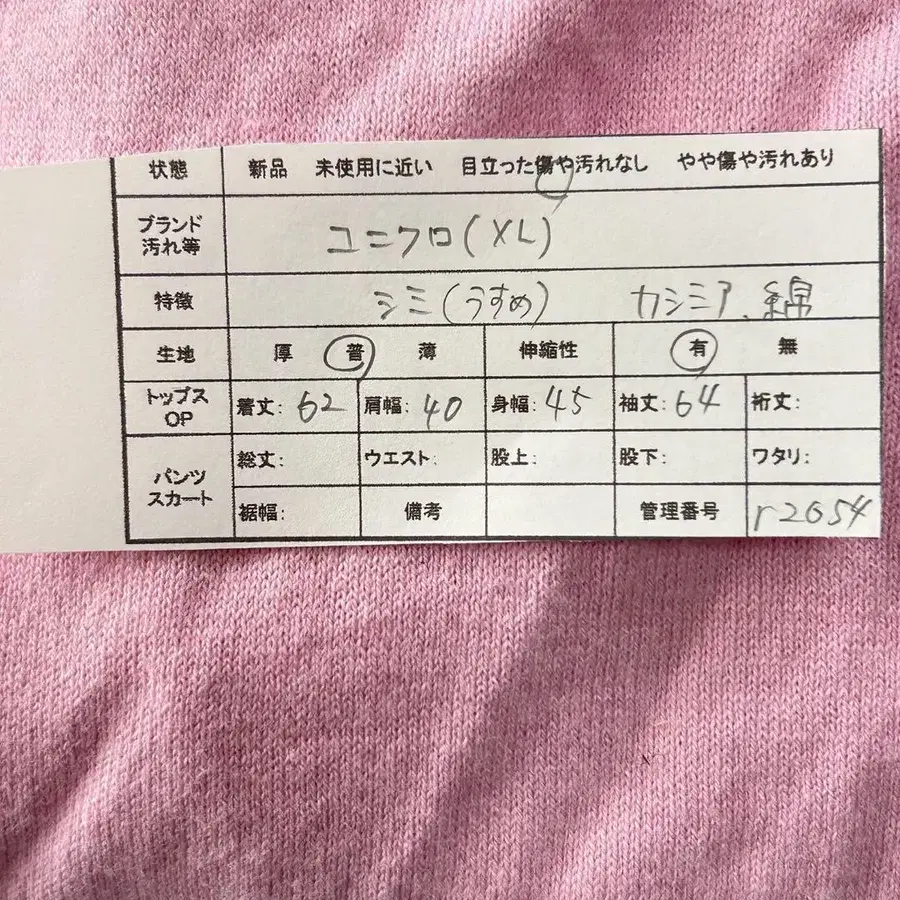 状態 新品 未使用に近い 目立った傷や汚れなし やや傷や汚れあり
ブランド
汚れ等
ユニクロ(XL)
特徴 シミ(うすめ) カシミア、綿
生地 厚 普 薄 伸縮性 有 無
トップス
OP
着丈: 62 肩幅: 40 身幅: 45 袖丈: 64 裄丈:
パンツ
スカート
総丈: ウエスト: 股上: 股下: ワタリ:
裾幅: 備考 管理番号 r2654